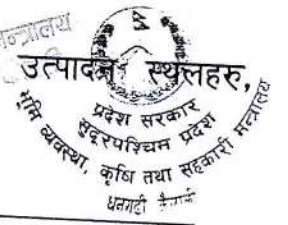 मन्त्रालय
उत्पादन स्थलहरु,
प्रदेश सरकार
सुदूरपश्चिम प्रदेश
भूमि व्यवस्था, कृषि तथा सहकारी मन्त्रालय
धनगढी कैलाली